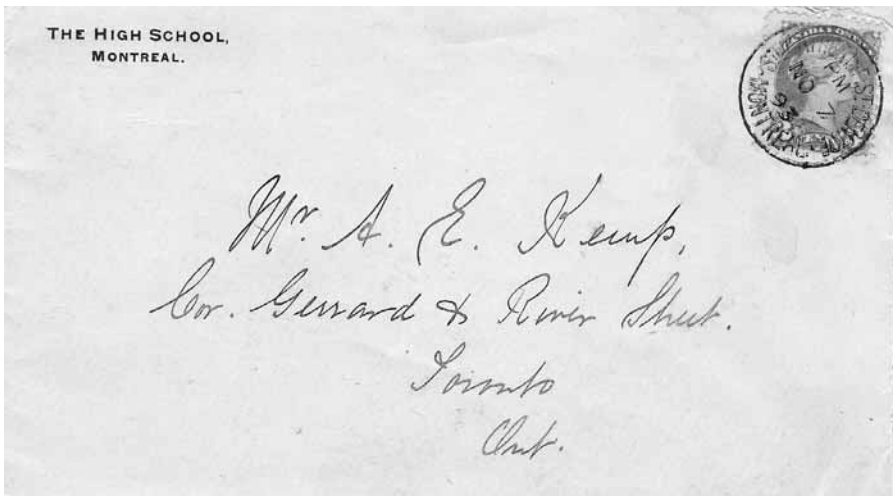 THE HIGH SCHOOL,
MONTREAL.
PM
NO 7
93
MONTREAL
Mr. A. E. Kemp,
Cor. Gerrard & River Street.
Toronto
Ont.